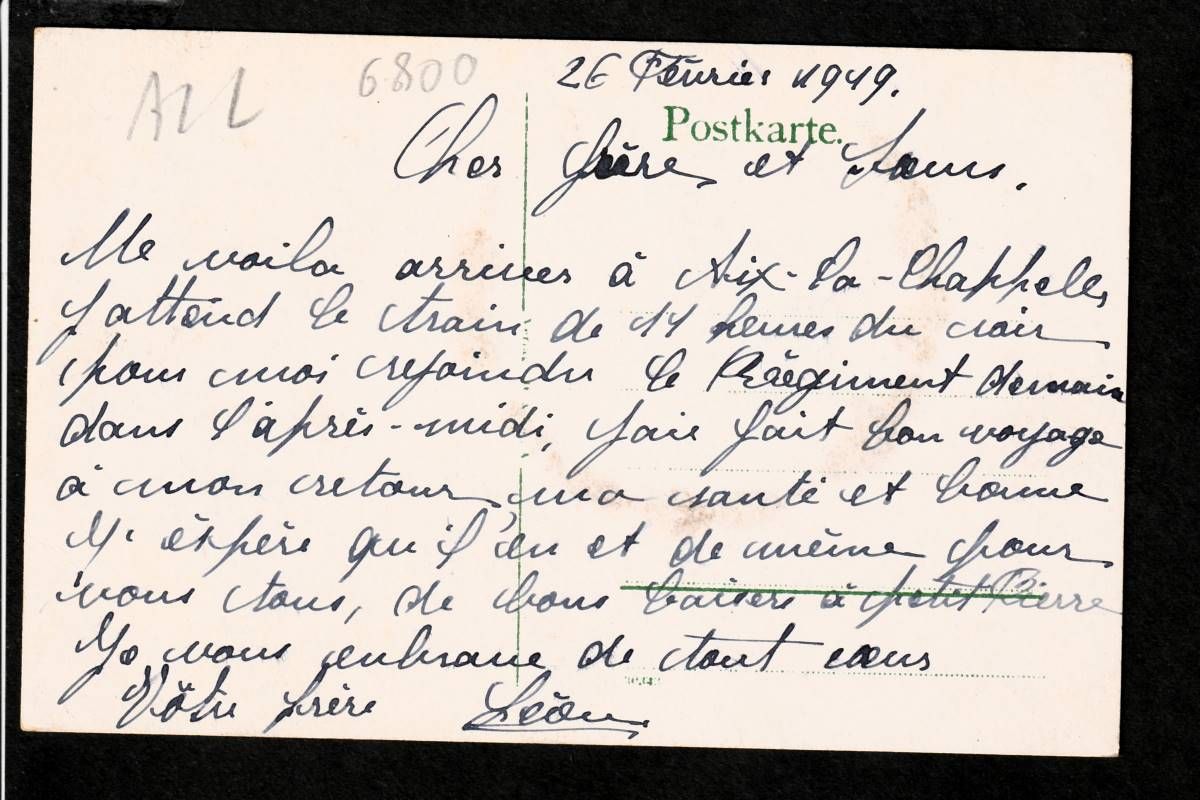 ALL 6800
26 Février 1919.
Postkarte.
Cher frère et sœur.
Me voila arriver à Aix-la-Chappelle,
j'attend le train de 14 heures du soir
pour moi rejoindre le Régiment demain
dans l'après-midi, jaie fait bon voyage
à mon retour, ma santé et bonne
J' éspère qu'il en et de même pour
vous tous, de bons baisers à petit Pierre
Je vous enbrasse de tout cœur
Vôtre frère Léon